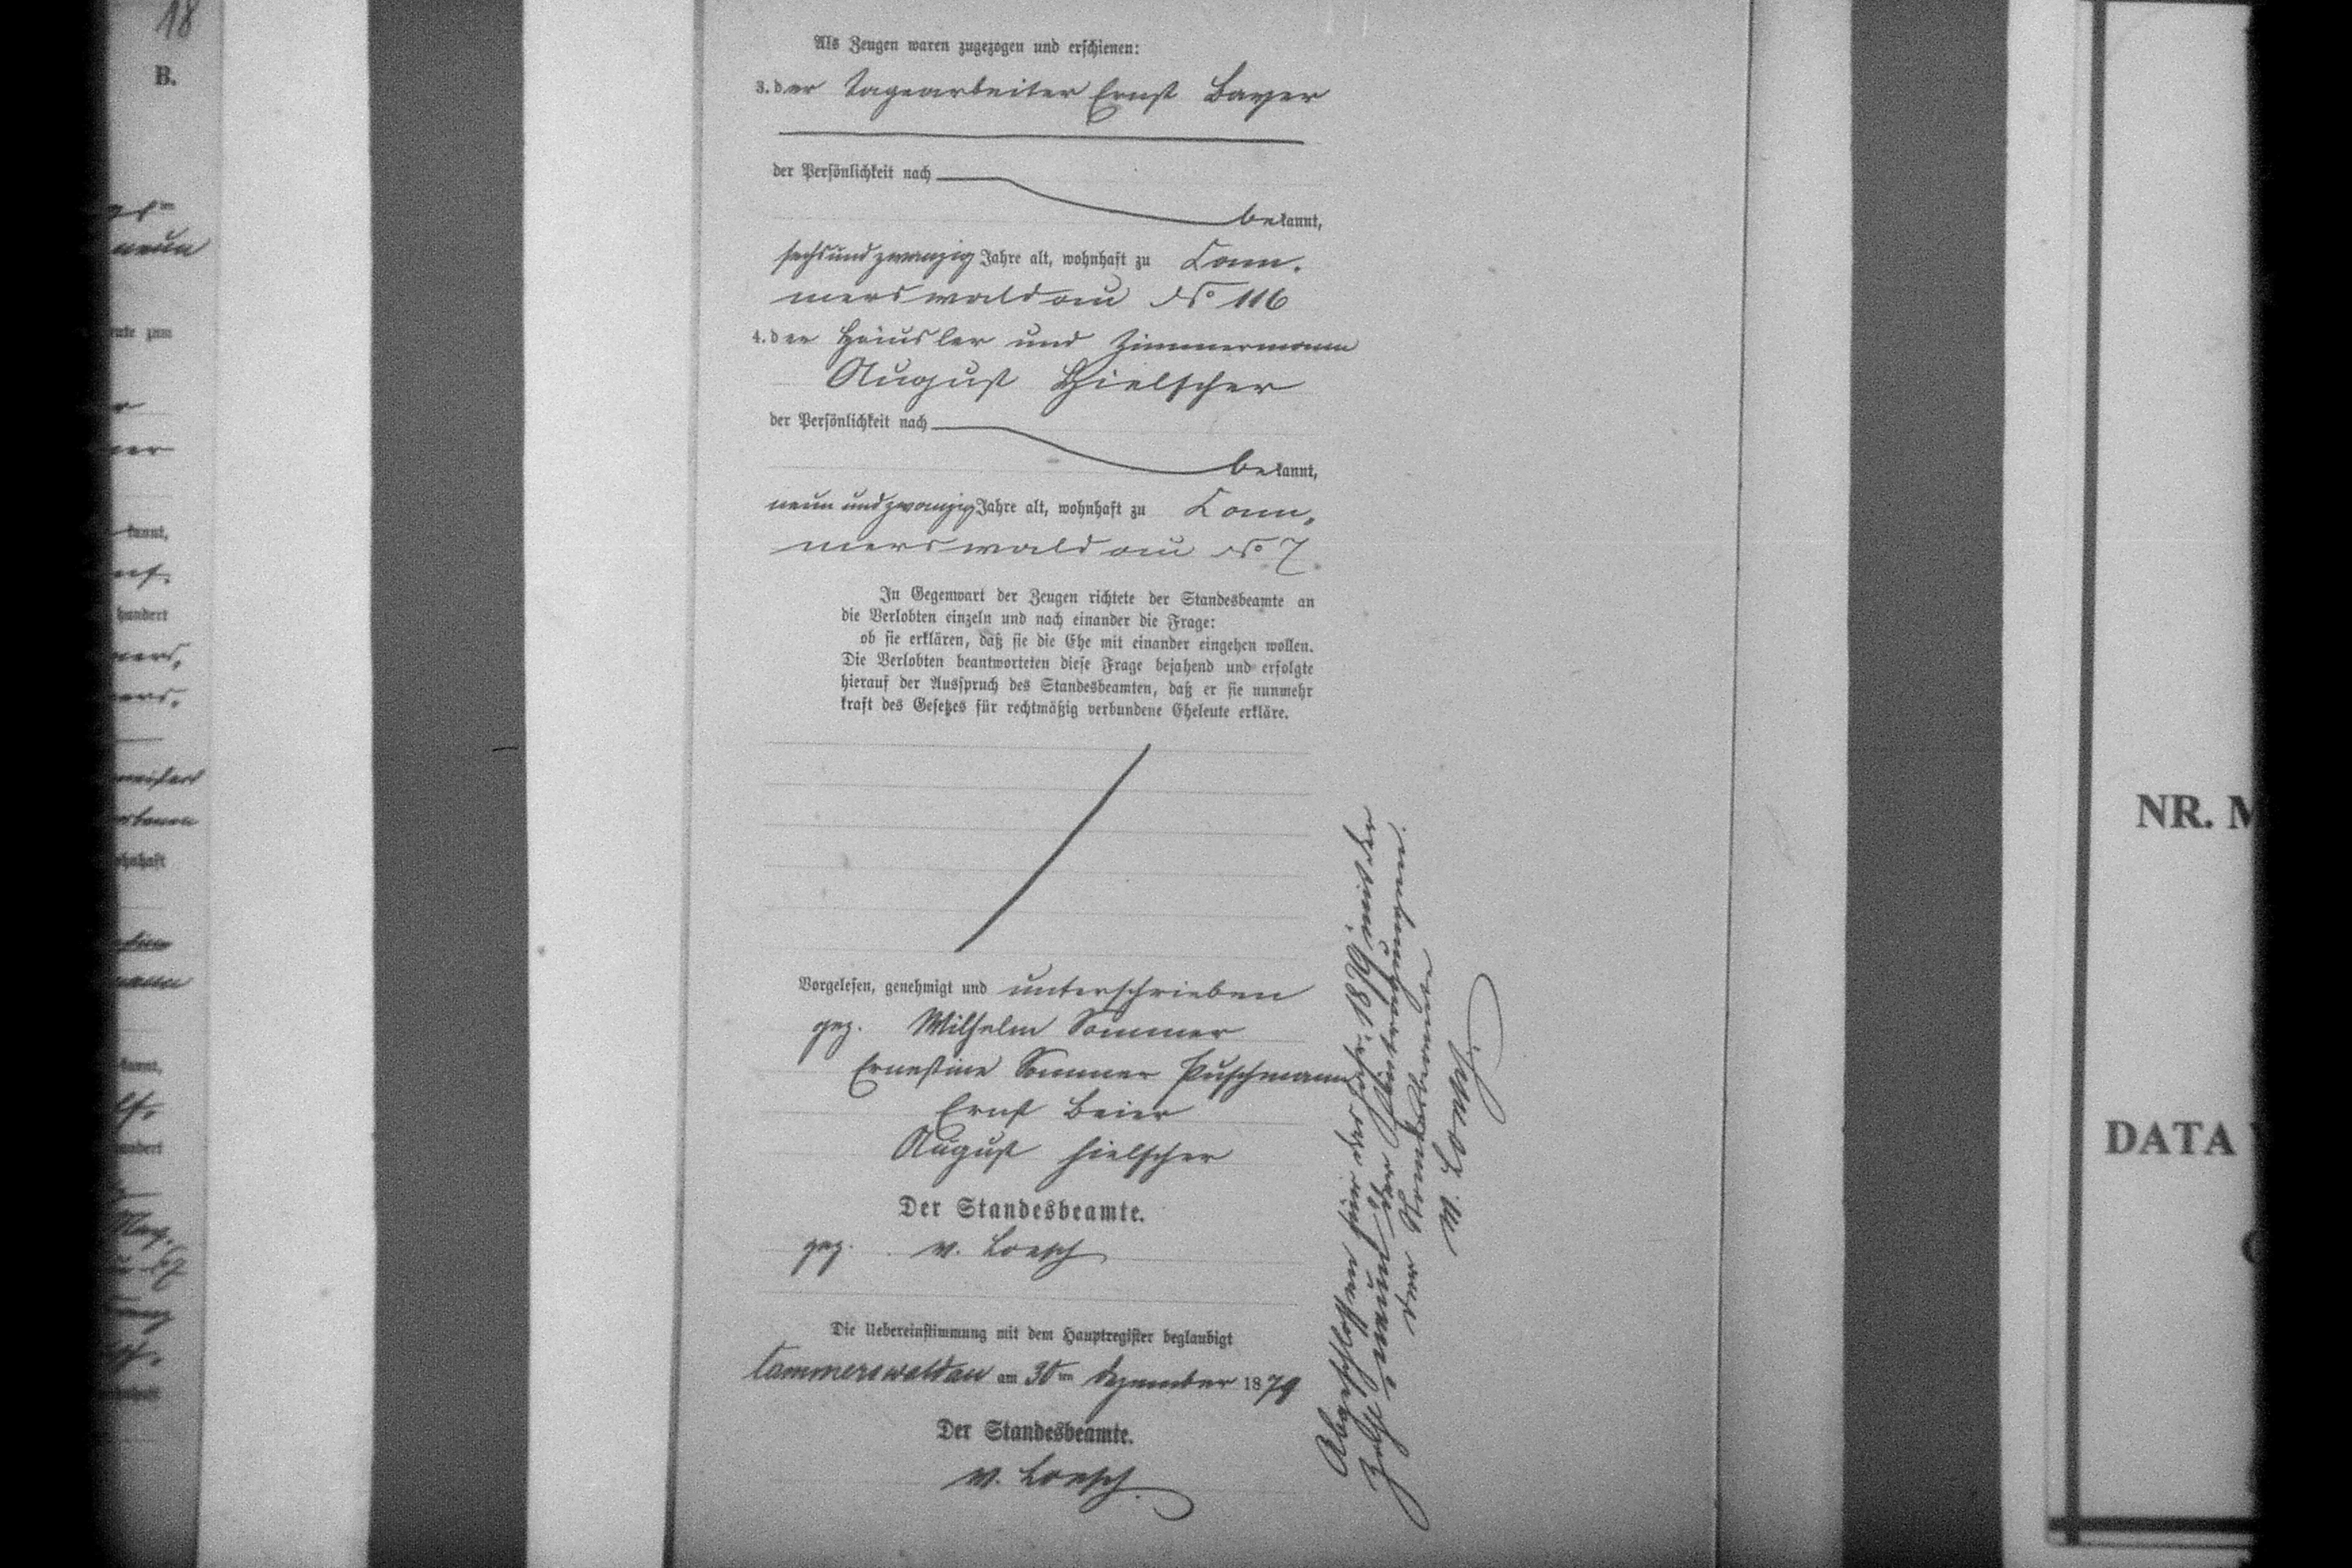 18
B.
neun
kannt,
hundert
wohnhaft
kannt,
hundert
Als Zeugen waren zugezogen und erschienen:
3. der Tagearbeiter Ernst Bayer
der Persönlichkeit nach
bekannt,
sechsundzwanzig Jahre alt, wohnhaft zu Cam-
merswaldau No 116
4. der Häusler und Zimmermann
August Hielscher
der Persönlichkeit nach
bekannt,
neunundzwanzig Jahre alt, wohnhaft zu Cam-
merswaldau No 7
In Gegenwart der Zeugen richtete der Standesbeamte an
die Verlobten einzeln und nach einander die Frage:
ob sie erklären, daß sie die Ehe mit einander eingehen wollen.
Die Verlobten beantworteten diese Frage bejahend und erfolgte
hierauf der Ausspruch des Standesbeamten, daß er sie nunmehr
kraft des Gesetzes für rechtmäßig verbundene Eheleute erkläre.
Vorgelesen, genehmigt und unterschrieben
gez. Wilhelm Sommer
Ernestine Sommer Puschmann
Ernst Beier
August Hielscher
Der Standesbeamte.
gez. v. Loesch
Die Uebereinstimmung mit dem Hauptregister beglaubigt
Cammerswaldau am 30ten Dezember 1879
Der Standesbeamte.
v. Loesch.
Abgeschlossen für das Jahr 1879 mit der
der Eintragungen.
der Standesbeamte
v. Loesch.
NR. M
DATA